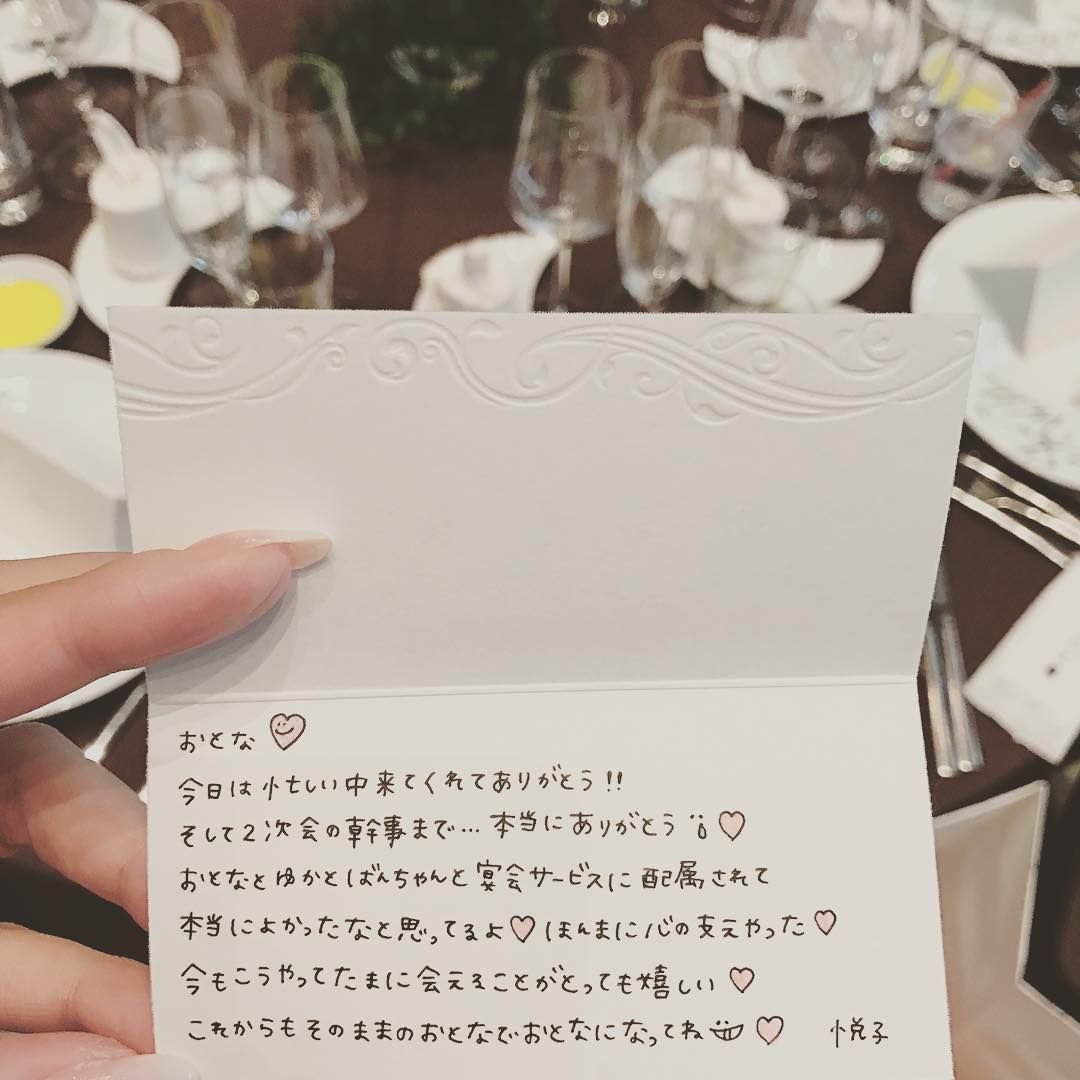 おとな
今日は忙しい中来てくれてありがとう!!
そして2次会の幹事まで…本当にありがとう
おとなとゆかとばんちゃんと宴会サービスに配属されて
本当によかったなと思ってるよ♡ほんまに心の支えやった♡
今もこうやってたまに会えることがとっても嬉しい♡
これからもそのままのおとなでおとなになってね♡ 悦子